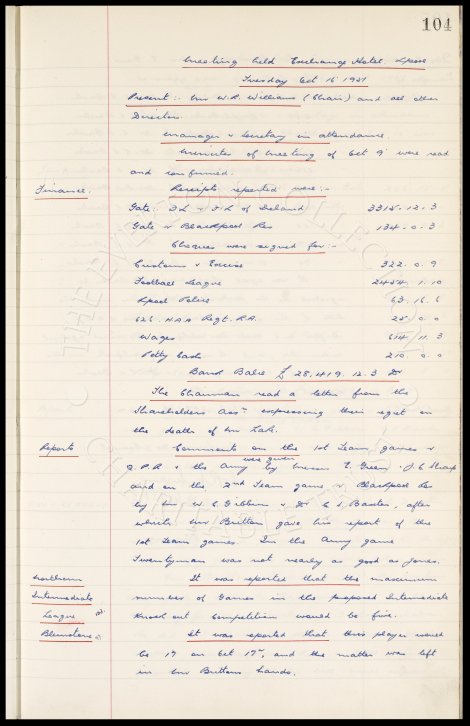 104
Meeting held Exchange Hotel. Lpool
Tuesday Oct 16th 1951
Present:- Mr W.R. Williams (Chair) and all other
Directors.
Manager & Secretary in attendance.
Minutes of Meeting of Oct 9th were read
and confirmed.
Finance. Receipts reported were:-
Gate:- F.L. v F.L. of Ireland 3315. 12. 3
Gate v Blackpool Res 134. 0. 3
Cheques were signed for:-
Customs & Excise 322. 0. 9
Football League 2454. 1. 10
Lpool Police 63. 16. 6
626. H.A.A Regt. R.A. 25. 0. 0
Wages 614. 11. 3
Petty Cash 210. 0. 0
Bank Balce £ 28,419. 12. 3 Dr
The Chairman read a letter from the
Shareholders Assn expressing their regret in
the death of Mr Lake.
Reports Comments on the 1st Team games v
were given
Q.P.R & the Army by Messrs E. Green & J C Sharp
and on the 2nd Team game v. Blackpool Res
by Mr W. C. Gibbins & Dr C. S. Baxter, after
which Mr Britton gave his report of the
1st Team games. In the Army game
Twentyman was not nearly as good as Jones.
Northern It was reported that the maximum
Intermediate number of Games in the proposed Intermediate
League Knock out Competition would be five.
Blunstone It was reported that this player would
be 17 on Oct 17th, and the matter was left
in Mr Brittons hands.
THE EVERTON COLLECTION
CHARITABLE